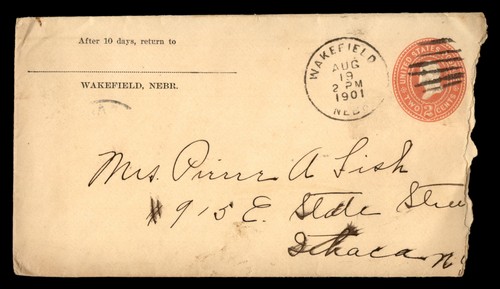 After 10 days, return to
WAKEFIELD, NEBR.
WAKEFIELD
AUG
19
2 PM
1901
NEB
UNITED STATES
TWO 2 CENTS
Mrs. Pierre A Fish
# 915 E. State Stree
Ithaca N